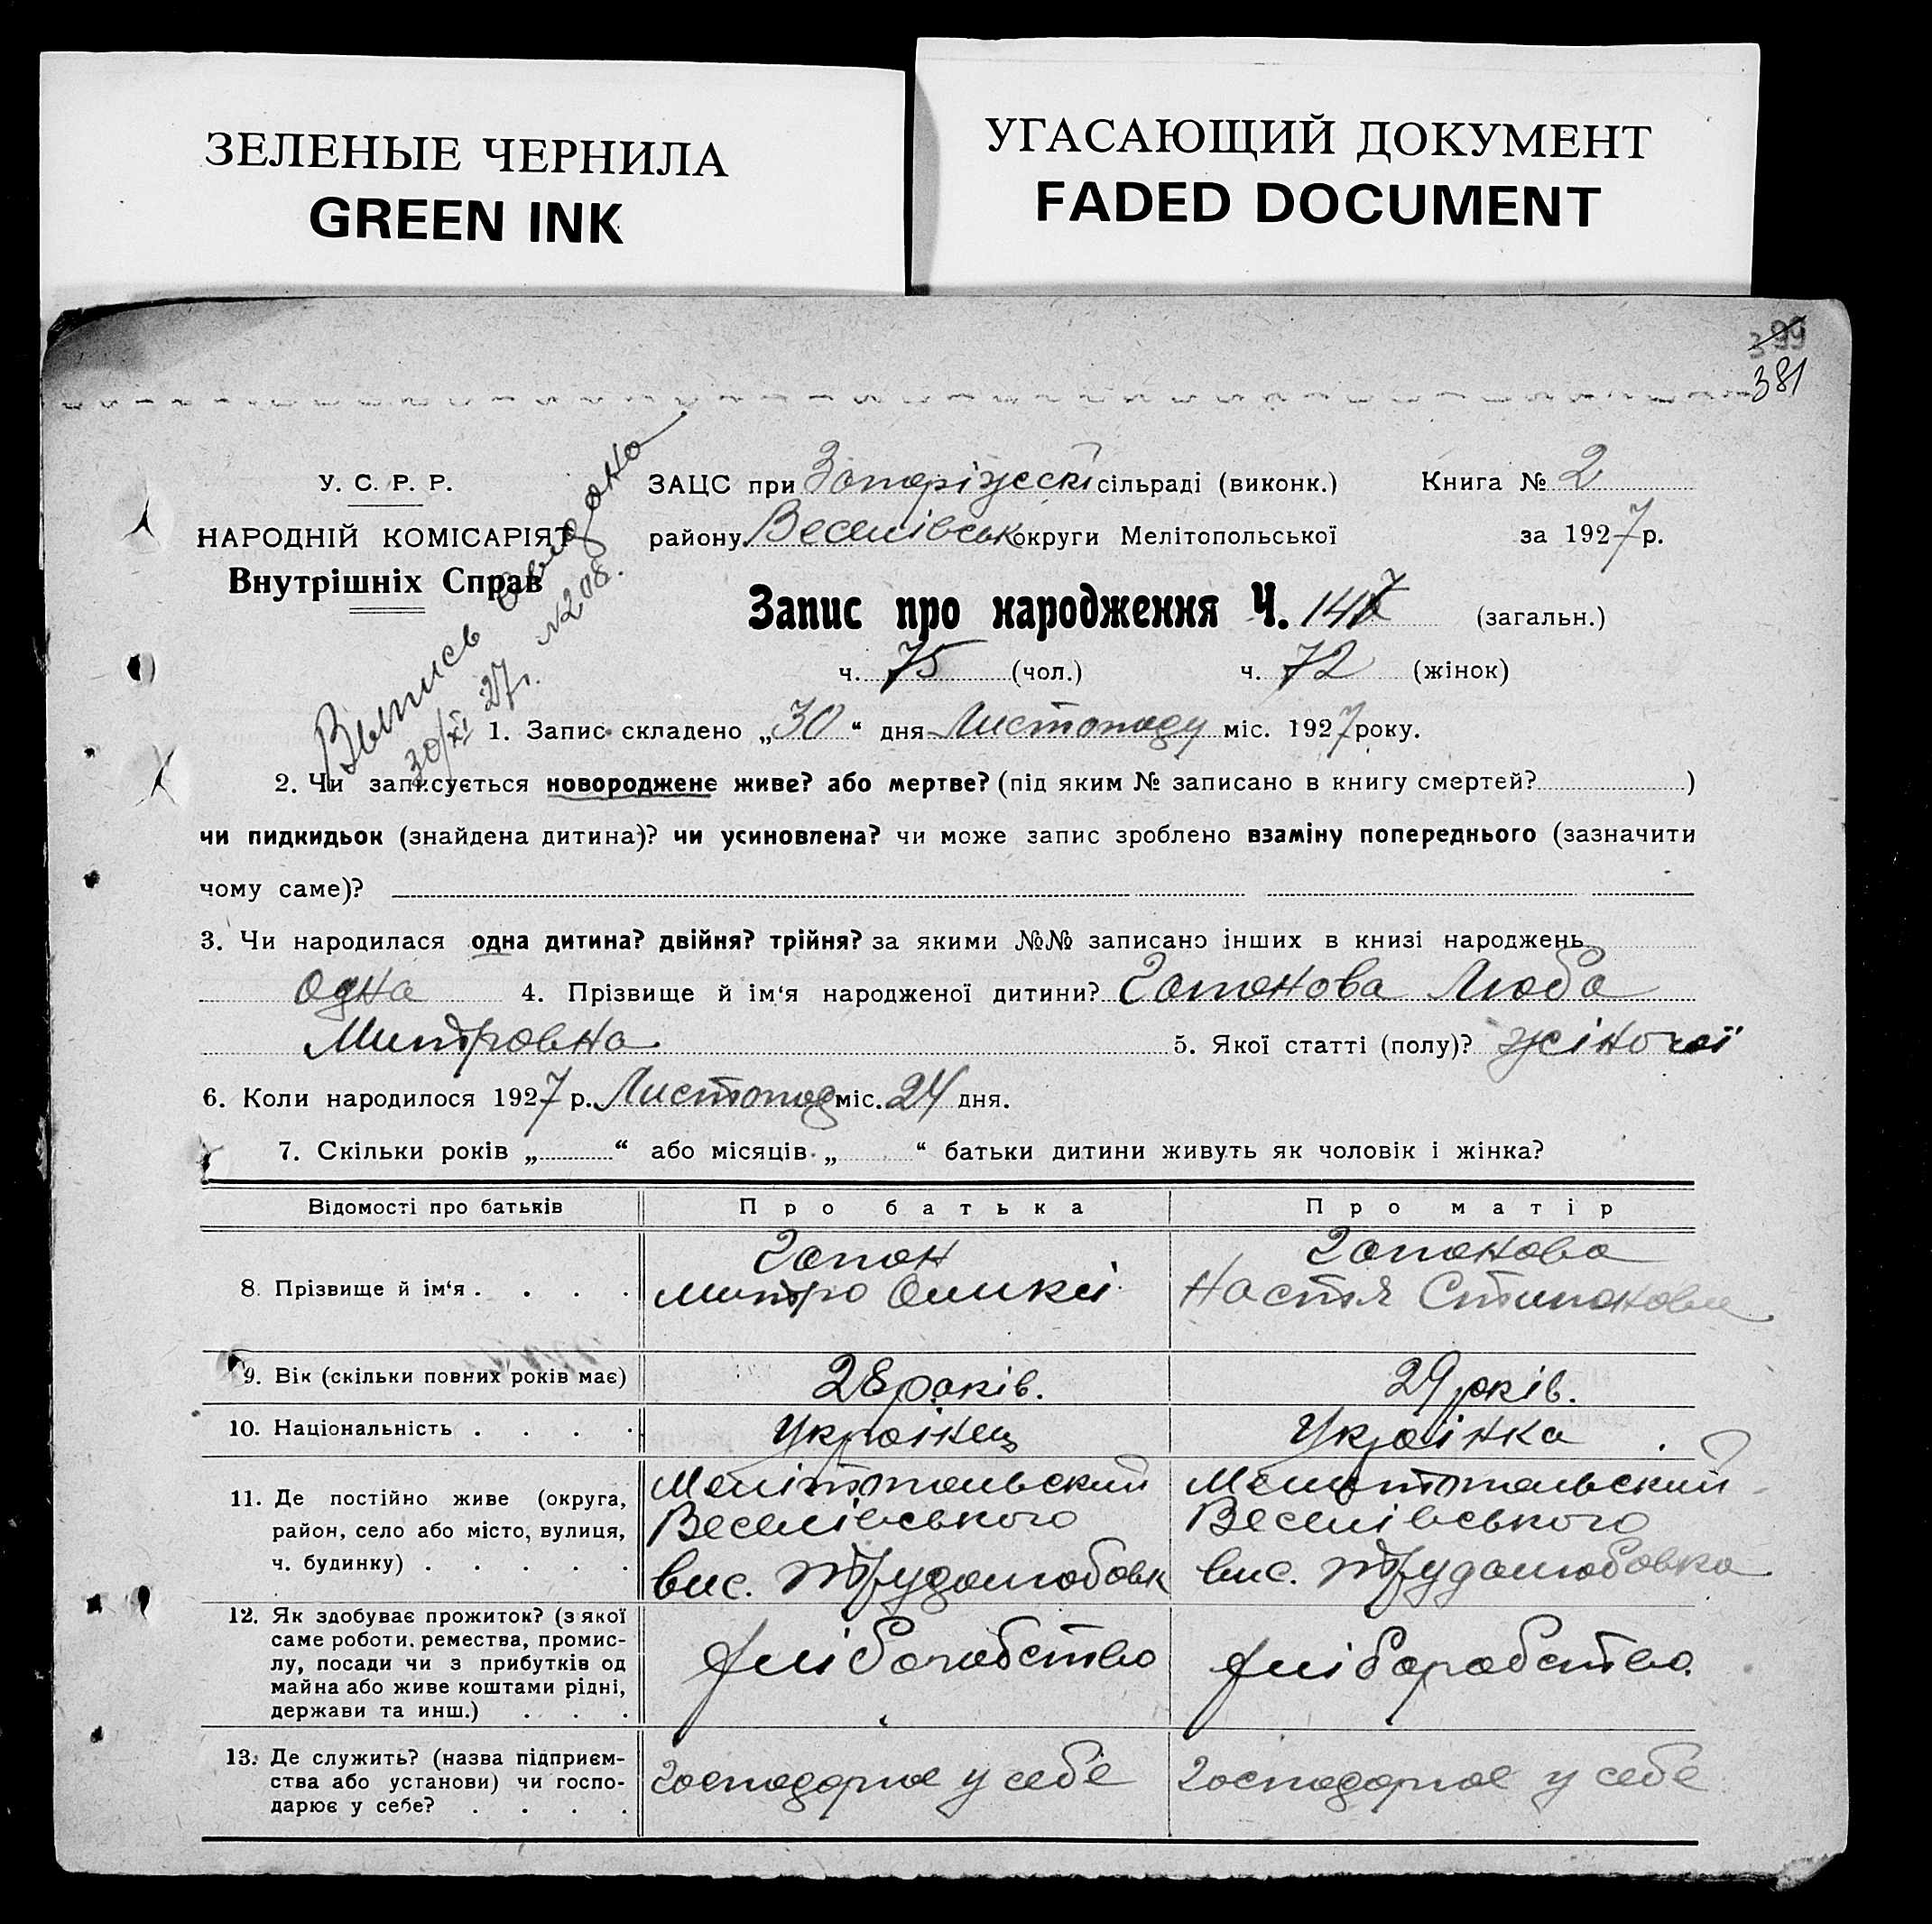 ЗЕЛЕНЫЕ ЧЕРНИЛА
GREEN INK
УГАСАЮЩИЙ ДОКУМЕНТ
FADED DOCUMENT
399
381
У. С. Р. Р.
НАРОДНІЙ КОМІСАРІЯТ
Внутрішніх Справ
Выпись выдано
30/XI 27 г. №208.
ЗАЦС при Запоріжскі сільраді (виконк.) Книга № 2
району Веселівськ округи Мелітопольської за 1927 р.
Запис про народження Ч. 147 (загальн.)
ч. 75 (чол.) ч. 72 (жінок)
1. Запис складено „30“ дня Листопаду міс. 1927 року.
2. Чи записується новороджене живе? або мертве? (під яким № записано в книгу смертей? )
чи пидкидьок (знайдена дитина)? чи усиновлена? чи може запис зроблено взаміну попереднього (зазначити
чому саме)?
3. Чи народилася одна дитина? двійня? трійня? за якими №№ записано інших в книзі народжень
одна 4. Прізвище й ім'я народженої дитини? Гапонова Люба
Митровна 5. Якої статті (полу)? жіночої
6. Коли народилося 1927 р. Листопад міс. 24 дня.
7. Скільки років „ “ або місяців „ “ батьки дитини живуть як чоловік і жінка?
Відомості про батьків Про батька Про матір
8. Прізвище й ім'я . . . . Гапон Гапонова
Митро Настя
9. Вік (скільки повних років має) 28 років. 29 років.
10. Національність . . . . Українець Українка
11. Де постійно живе (округа, район, село або місто, вулиця, ч. будинку) . . . . .
Мелітопольский Мелитопольский
Веселівського Веселівського
вис. Трудолюбовк вис. Трудолюбовка
12. Як здобуває прожиток? (з якої
саме роботи, ремества, промис-
лу, посади чи з прибутків од
майна або живе коштами рідні,
держави та инш.) . . .
хліборобство хлiборобство.
13. Де служить? (назва підприєм-
ства або установи) чи госпо-
дарює у себе? . . . .
господарює у себе господарює у себе